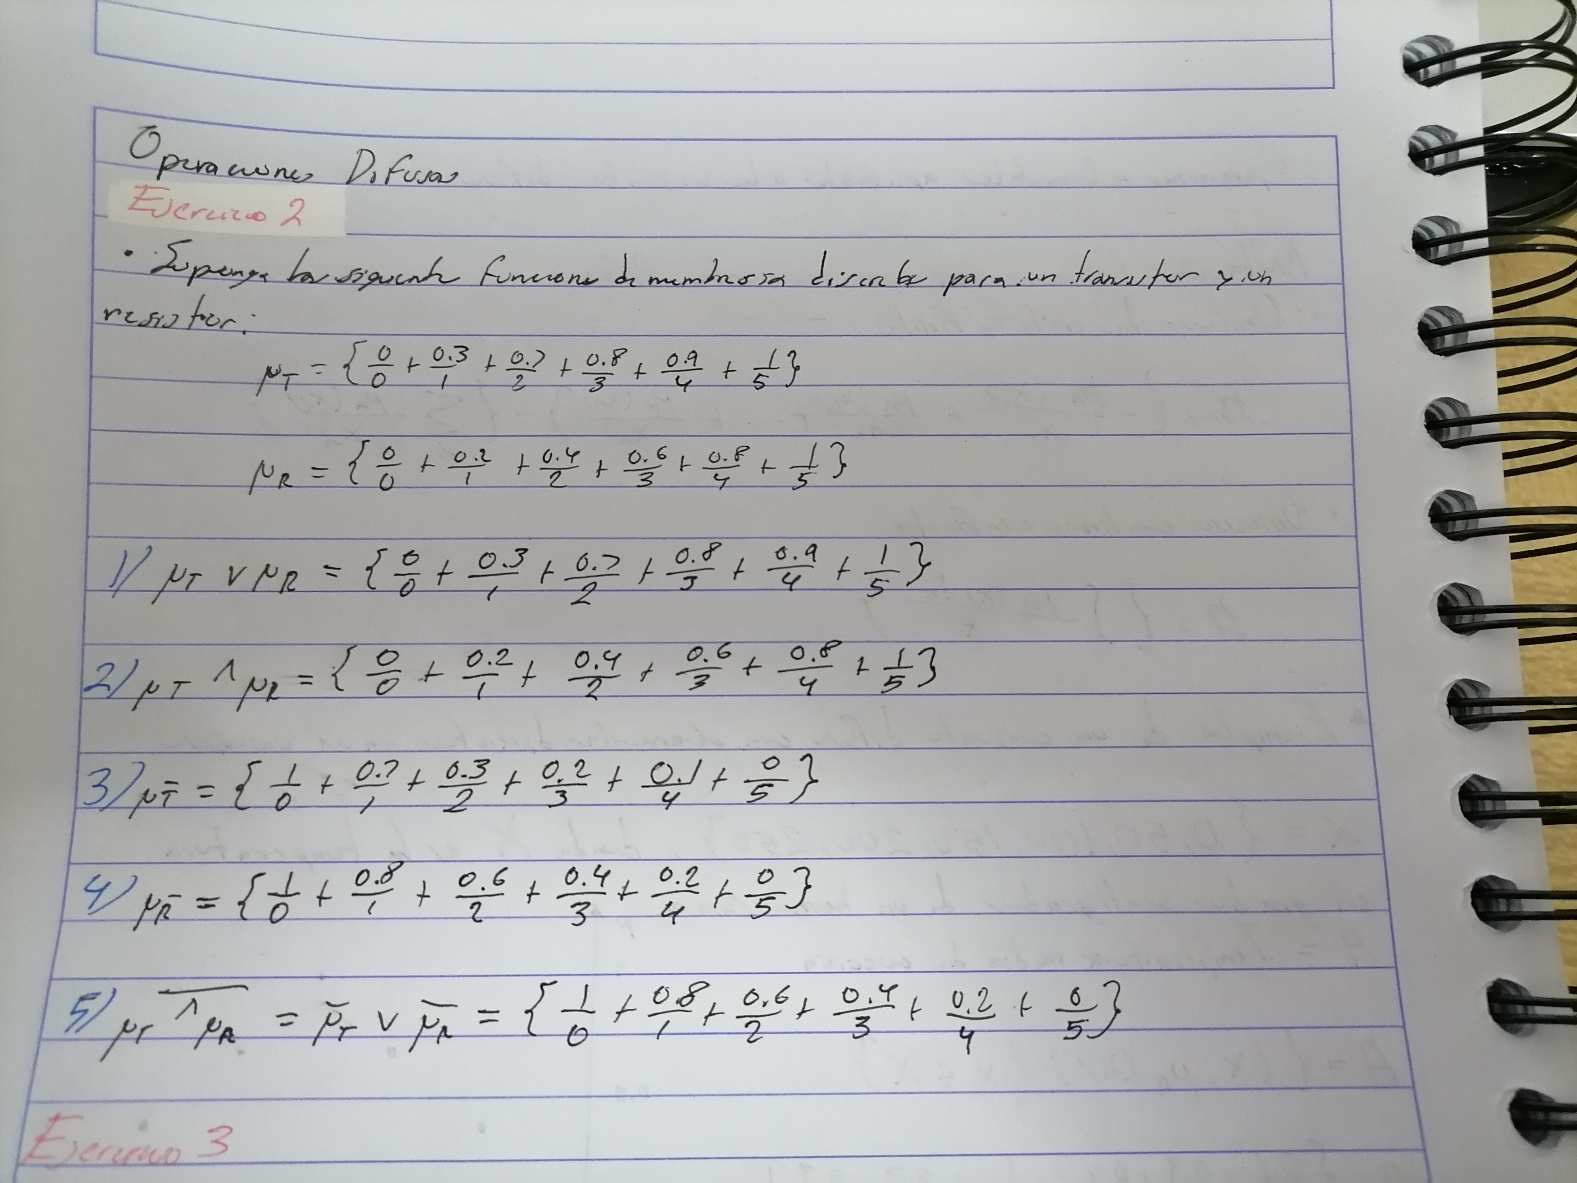 Operaciones Difusas
Ejercicio 2
• Suponga las siguiente funciones de membrosia discreta para un transistor y un
resistor:
μ_T = {0/0 + 0.3/1 + 0.7/2 + 0.8/3 + 0.9/4 + 1/5}
μ_R = {0/0 + 0.2/1 + 0.4/2 + 0.6/3 + 0.8/4 + 1/5}
1) μ_T ∨ μ_R = {0/0 + 0.3/1 + 0.7/2 + 0.8/3 + 0.9/4 + 1/5}
2) μ_T ∧ μ_R = {0/0 + 0.2/1 + 0.4/2 + 0.6/3 + 0.8/4 + 1/5}
3) μ_T̄ = {1/0 + 0.7/1 + 0.3/2 + 0.2/3 + 0.1/4 + 0/5}
4) μ_R̄ = {1/0 + 0.8/1 + 0.6/2 + 0.4/3 + 0.2/4 + 0/5}
5) \overline{μ_T ∧ μ_R} = μ̄_T ∨ μ̄_R = {1/0 + 0.8/1 + 0.6/2 + 0.4/3 + 0.2/4 + 0/5}
Ejercicio 3